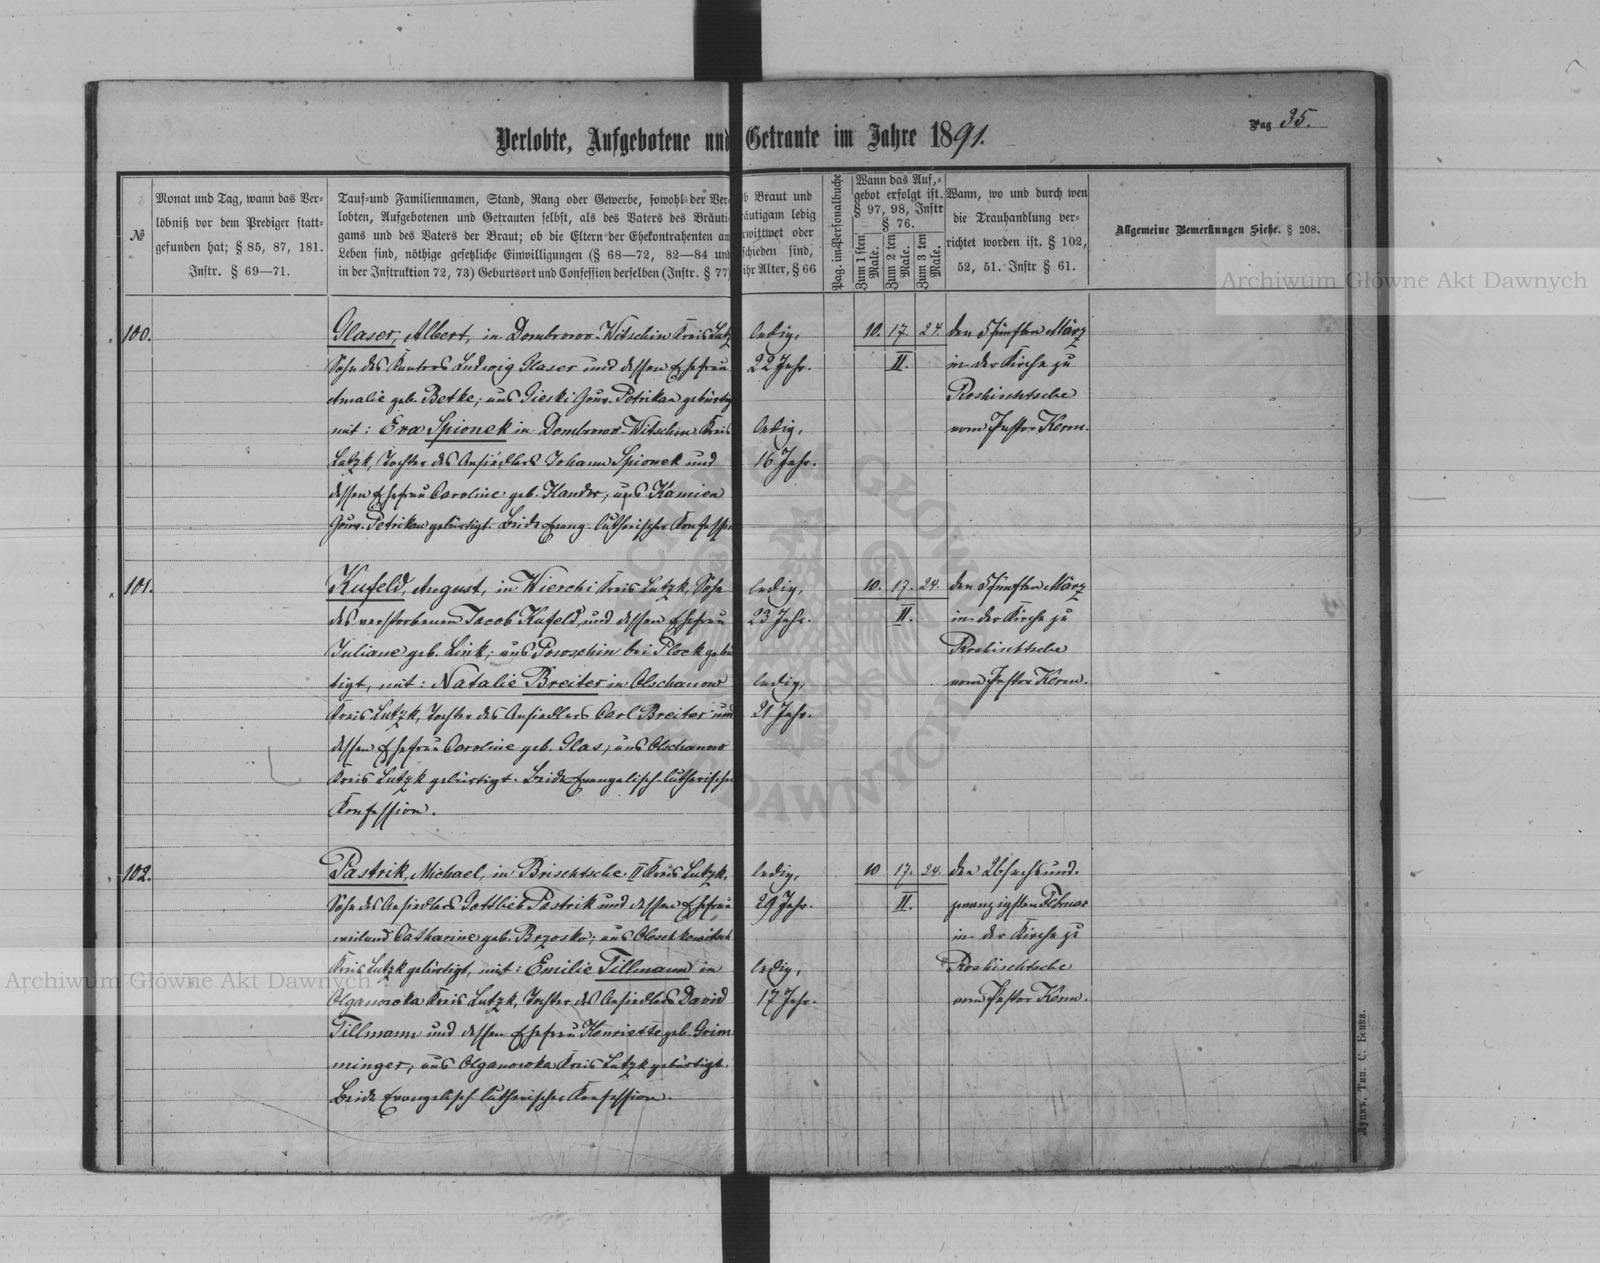 Pag 35.
Verlobte, Aufgebotene und Getraute im Jahre 1891.
№
Monat und Tag, wann das Ver-
löbniß vor dem Prediger statt-
gefunden hat; § 85, 87, 181.
Instr. § 69—71.
Tauf-und Familiennamen, Stand, Rang oder Gewerbe, sowohl der Ver-
lobten, Aufgebotenen und Getrauten selbst, als des Vaters des Bräuti-
gams und des Vaters der Braut; ob die Eltern der Ehekontrahenten am
Leben sind, nöthige gesetzliche Einwilligungen (§ 68—72, 82—84 und
in der Instruktion 72, 73) Geburtsort und Confession derselben (Instr. § 77)
b Braut und
äutigam ledig
rwittwet oder
schieden sind,
ihr Alter, § 66
Pag. im Personalbuche
Wann das Auf,-
gebot erfolgt ist.
§ 97, 98, Instr
§ 76.
Zum 1 sten Male.
Zum 2 ten Male.
Zum 3 ten Male.
Wann, wo und durch wen
die Trauhandlung ver-
richtet worden ist. § 102,
52, 51. Instr § 61.
Allgemeine Bemerkungen Siehe. § 208.
100.
Glaser, Albert, in Dombrowo-Witschin Kreis Lutzk
Sohn des Kantors Ludwig Glaser und dessen Ehefrau
Amalie geb. Betke; aus Gieski Gouv. Petrikau gebürtig
mit: Eva Spionek in Dombrowo-Witschin Kreis
Lutzk, Tochter des Ansiedlers Johann Spionek und
dessen Ehefrau Caroline geb. Kandor, aus Kamien
Gouv. Petrikau gebürtigt. Beide Evang. lutherischer Konfession
ledig,
22 Jahr.
ledig,
16 Jahr.
10. 17. 24.
II.
den 5 fünften März
in der Kirche zu
Roshischtsche
vom Pastor Kerm.
101.
Kufeld, August, in Wierchi Kreis Lutzk, Sohn
des verstorbenen Jacob Kufeld, und dessen Ehefrau
Juliane geb. Link; aus Poroschin bei Plock gebür
tigt, mit: Natalie Breiter in Olschanow
Kreis Lutzk, Tochter des Ansiedlers Carl Breiter und
dessen Ehefrau Caroline geb. Glas, aus Olschanow
Kreis Lutzk gebürtigt. Beide Evangelisch-lutherischer
Konfession.
ledig,
23 Jahr.
ledig,
21 Jahr.
10. 17. 24.
II.
den 5 fünften März
in der Kirche zu
Roshischtsche
vom Pastor Kerm.
102.
Pastrik, Michael, in Brischtsche II Kreis Lutzk,
Sohn des Ansiedlers Gottlieb Pastrik und dessen Ehefrau
weiland Catharine geb. Brzosko; aus Oloschkowitsch
Kreis Lutzk gebürtigt, mit: Emilie Tillmann in
Olganowka Kreis Lutzk, Tochter des Ansiedlers David
Tillmann und dessen Ehefrau Henriette geb. Grim-
minger, aus Olganowka Kreis Lutzk gebürtigt.
Beide Evangelisch-lutherischer Konfession.
ledig,
29 Jahr.
ledig,
17 Jahr.
10 17. 24.
II.
den 26 sechsund-
zwanzigsten Februar
in der Kirche zu
Roshischtsche
vom Pastor Kerm.
Луцкъ, Тип. С. Бенка.
Archiwum Główne Akt Dawnych
Archiwum Główne Akt Dawnych